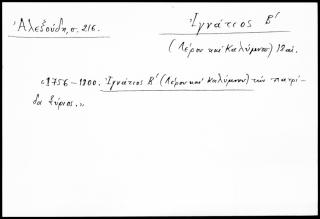 Ἀλεξούδη, σ. 216.
Ἰγνάτιος Β΄
(Λέρου καὶ Καλύμνου) 18 αἰ.
«1756 – 1800. Ἰγνάτιος Β΄ (Λέρου καὶ Καλύμνου) τὴν πατρί-
δα Σύριος.»